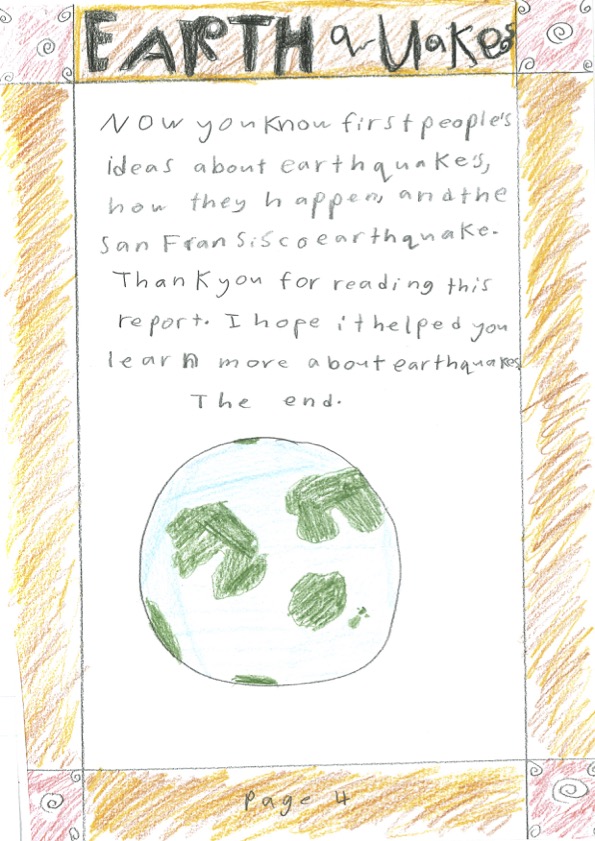 EARTHquakes
Now you know first people's
ideas about earthquakes,
how they happen, and the
San Fransisco earthquake.
Thank you for reading this
report. I hope it helped you
learn more about earthquakes
The end.
Page 4